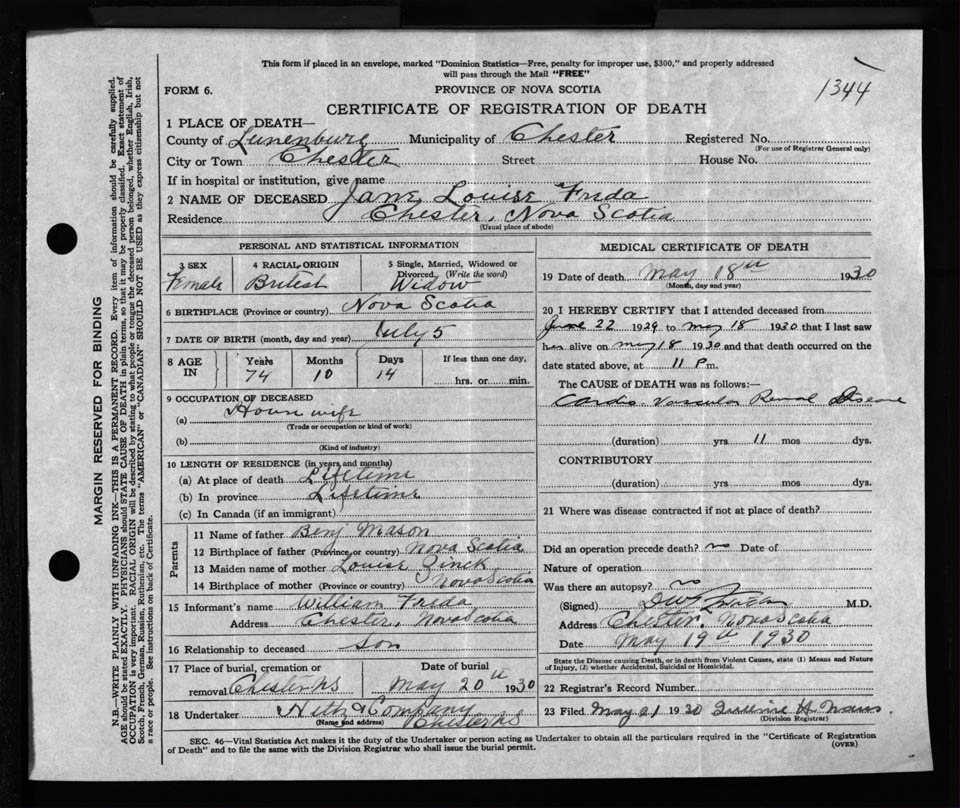 This form if placed in an envelope, marked "Dominion Statistics—Free, penalty for improper use, $300," and properly addressed
will pass through the Mail "FREE"
1344
FORM 6. PROVINCE OF NOVA SCOTIA
CERTIFICATE OF REGISTRATION OF DEATH
1 PLACE OF DEATH—
County of Lunenburg Municipality of Chester Registered No.
(For use of Registrar General only)
City or Town Chester Street House No.
If in hospital or institution, give name
2 NAME OF DECEASED Jane Louise Frida
Residence Chester, Nova Scotia
(Usual place of abode)
PERSONAL AND STATISTICAL INFORMATION
3 SEX Female
4 RACIAL ORIGIN British
5 Single, Married, Widowed or
Divorced. (Write the word)
Widow
6 BIRTHPLACE (Province or country) Nova Scotia
7 DATE OF BIRTH (month, day and year) July 5
8 AGE IN Years Months Days If less than one day,
74 10 14 hrs. or min.
9 OCCUPATION OF DECEASED
(a) House wife
(Trade or occupation or kind of work)
(b)
(Kind of industry)
10 LENGTH OF RESIDENCE (in years and months)
(a) At place of death Lifetime
(b) In province Lifetime
(c) In Canada (if an immigrant)
Parents
11 Name of father Benj Mason
12 Birthplace of father (Province or country) Nova Scotia
13 Maiden name of mother Louise Zinck
14 Birthplace of mother (Province or country) Nova Scotia
15 Informant's name William Frida
Address Chester, Nova Scotia
16 Relationship to deceased Son
17 Place of burial, cremation or removal Chester NS
Date of burial May 20th 1930
18 Undertaker & Company
(Name and address) Chester NS
MEDICAL CERTIFICATE OF DEATH
19 Date of death May 18th 1930
(Month, day and year)
20 I HEREBY CERTIFY that I attended deceased from
June 22 1929 to May 18 1930 that I last saw
her alive on May 18 1930 and that death occurred on the
date stated above, at 11 P m.
The CAUSE OF DEATH was as follows:—
Cardio Vascular Renal Disease
(duration) yrs 11 mos dys.
CONTRIBUTORY
(duration) yrs. mos. dys.
21 Where was disease contracted if not at place of death?
Did an operation precede death? no Date of
Nature of operation
Was there an autopsy? no
(Signed) M.D.
Address Chester, Nova Scotia
Date May 19th 1930
State the Disease causing Death, or in death from Violent Causes, state (1) Means and Nature
of Injury, (2) whether Accidental, Suicidal or Homicidal.
22 Registrar's Record Number
23 Filed May 21 1930
(Division Registrar)
SEC. 46—Vital Statistics Act makes it the duty of the Undertaker or person acting as Undertaker to obtain all the particulars required in the "Certificate of Registration
of Death" and to file the same with the Division Registrar who shall issue the burial permit.
(OVER)
MARGIN RESERVED FOR BINDING
N.B.—WRITE PLAINLY WITH UNFADING INK—THIS IS A PERMANENT RECORD. Every item of information should be carefully supplied.
AGE should be stated EXACTLY. PHYSICIANS should STATE CAUSE OF DEATH in plain terms, so that it may be properly classified. Exact statement of
OCCUPATION is very important. RACIAL ORIGIN will be described by stating to what people or tongue the deceased person belonged, whether English, Irish,
Scotch, French, German, Russian, Ruthenian, etc. The terms "AMERICAN" or "CANADIAN" SHOULD NOT BE USED as they express citizenship but not
a race or people. See instructions on back of Certificate.